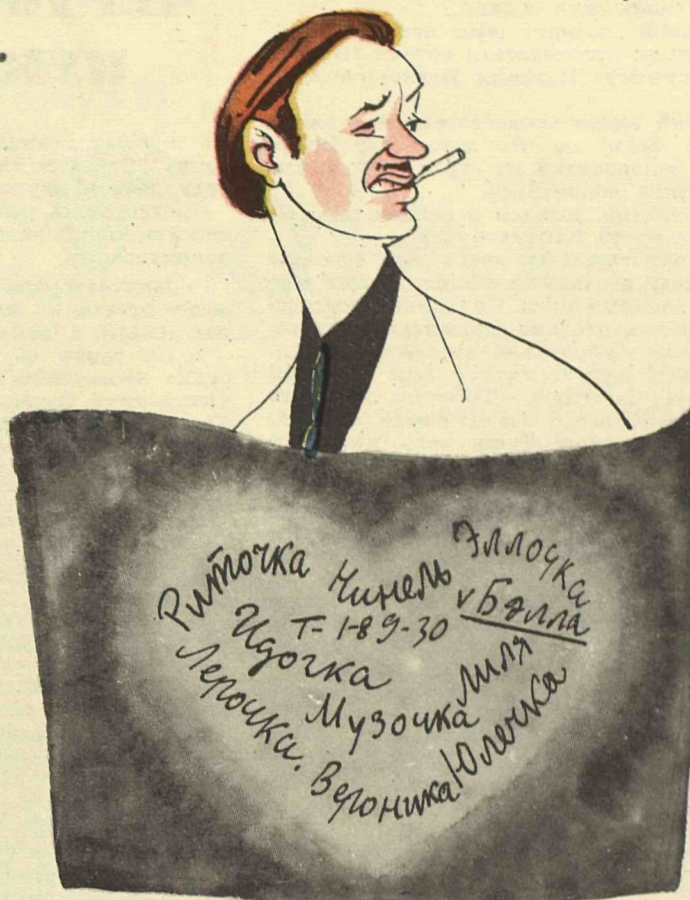 Риточка
Нинель
Эллочка
Т-1-89-30
v Бэлла
Идочка
Лиля
Лерочка.
Музочка
Вероника
Юлечка